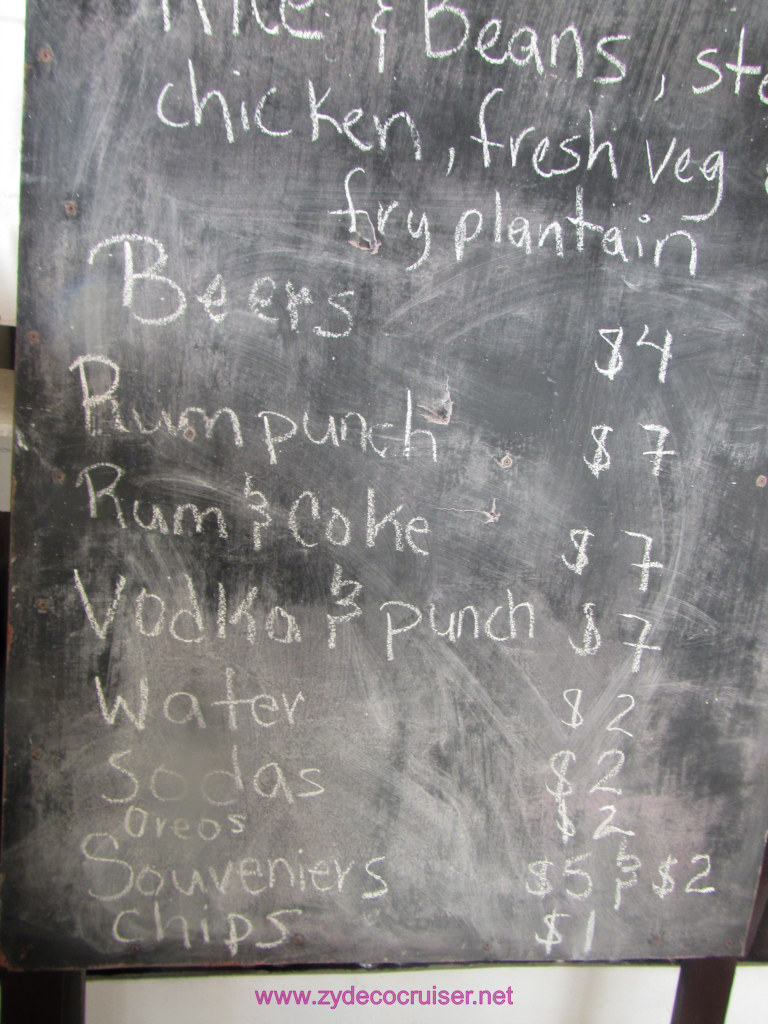 Rice & Beans,
chicken, fresh veg
fry plantain
Beers $4
Rum punch $7
Rum & Coke $7
Vodka & punch $7
Water $2
Sodas $2
Oreos $2
Souveniers $5 & $2
chips $1
www.zydecocruiser.net